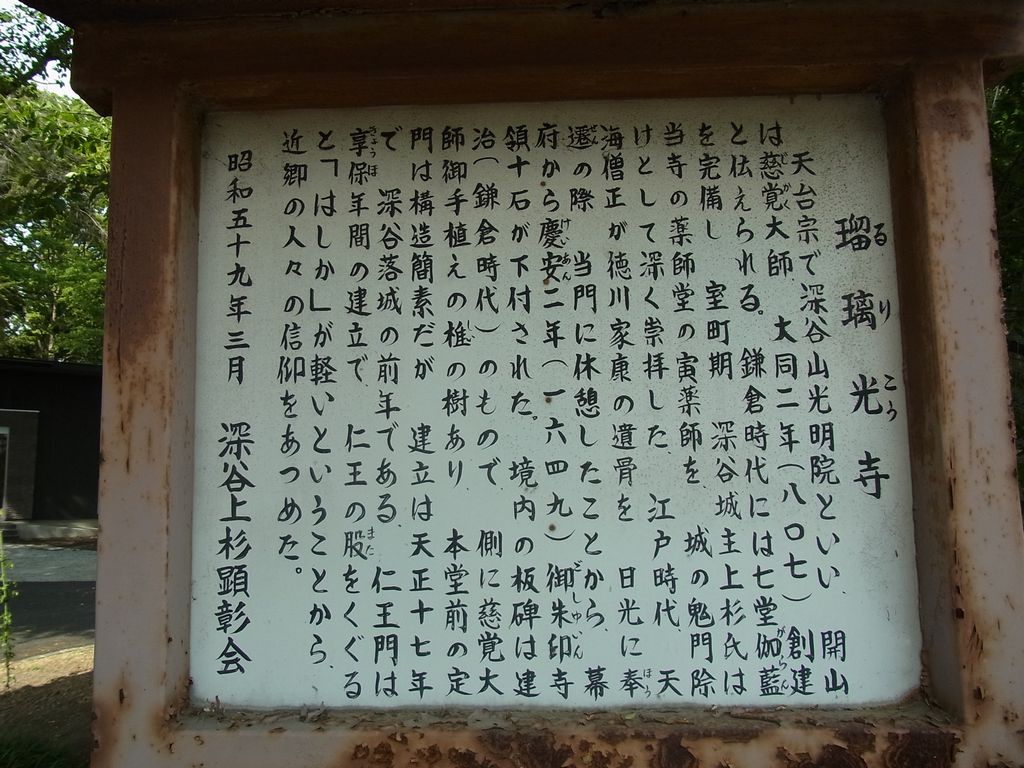 瑠璃光寺
天台宗で深谷山光明院といい、開山
は慈覚大師、大同二年(八〇七)創建
と伝えられる。鎌倉時代には七堂伽藍
を完備し、室町期、深谷城主上杉氏は
当寺の薬師堂の寅薬師を、城の鬼門除
けとして深く崇拝した。江戸時代、天
海僧正が徳川家康の遺骨を、日光に奉
遷の際、当門に休憩したことから、幕
府から慶安二年(一六四九)御朱印寺
領十石が下付された。境内の板碑は建
治(鎌倉時代)のもので、側に慈覚大
師御手植えの椎の樹あり、本堂前の定
門は構造簡素だが、建立は天正十七年
で、深谷落城の前年である。仁王門は
享保年間の建立で、仁王の股をくぐる
と「はしか」が軽いということから、
近郷の人々の信仰をあつめた。
昭和五十九年三月 深谷上杉顕彰会